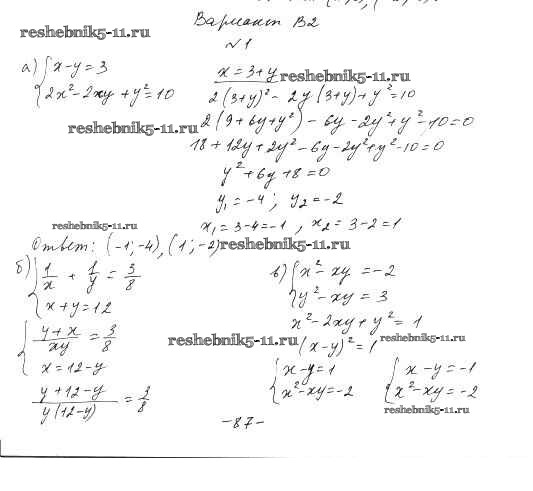 Вариант В2
reshebnik5-11.ru
№1
а) { x-y=3
2x²-2xy+y²=10
x=3+y reshebnik5-11.ru
2(3+y)²-2y(3+y)+y²=10
reshebnik5-11.ru 2(9+6y+y²)-6y-2y²+y²-10=0
18+12y+2y²-6y-2y²+y²-10=0
y²+6y+8=0
y₁=-4; y₂=-2
reshebnik5-11.ru x₁=3-4=-1, x₂=3-2=1
Ответ: (-1;-4),(1;-2) reshebnik5-11.ru
б) { 1/x + 1/y = 3/8
x+y=12
{ (y+x)/xy = 3/8
x=12-y
(y+12-y)/(y(12-y)) = 3/8
в) { x²-xy=-2
y²-xy=3
x²-2xy+y²=1
reshebnik5-11.ru (x-y)²=1 reshebnik5-11.ru
{ x-y=1 { x-y=-1
x²-xy=-2 x²-xy=-2
reshebnik5-11.ru
-87-